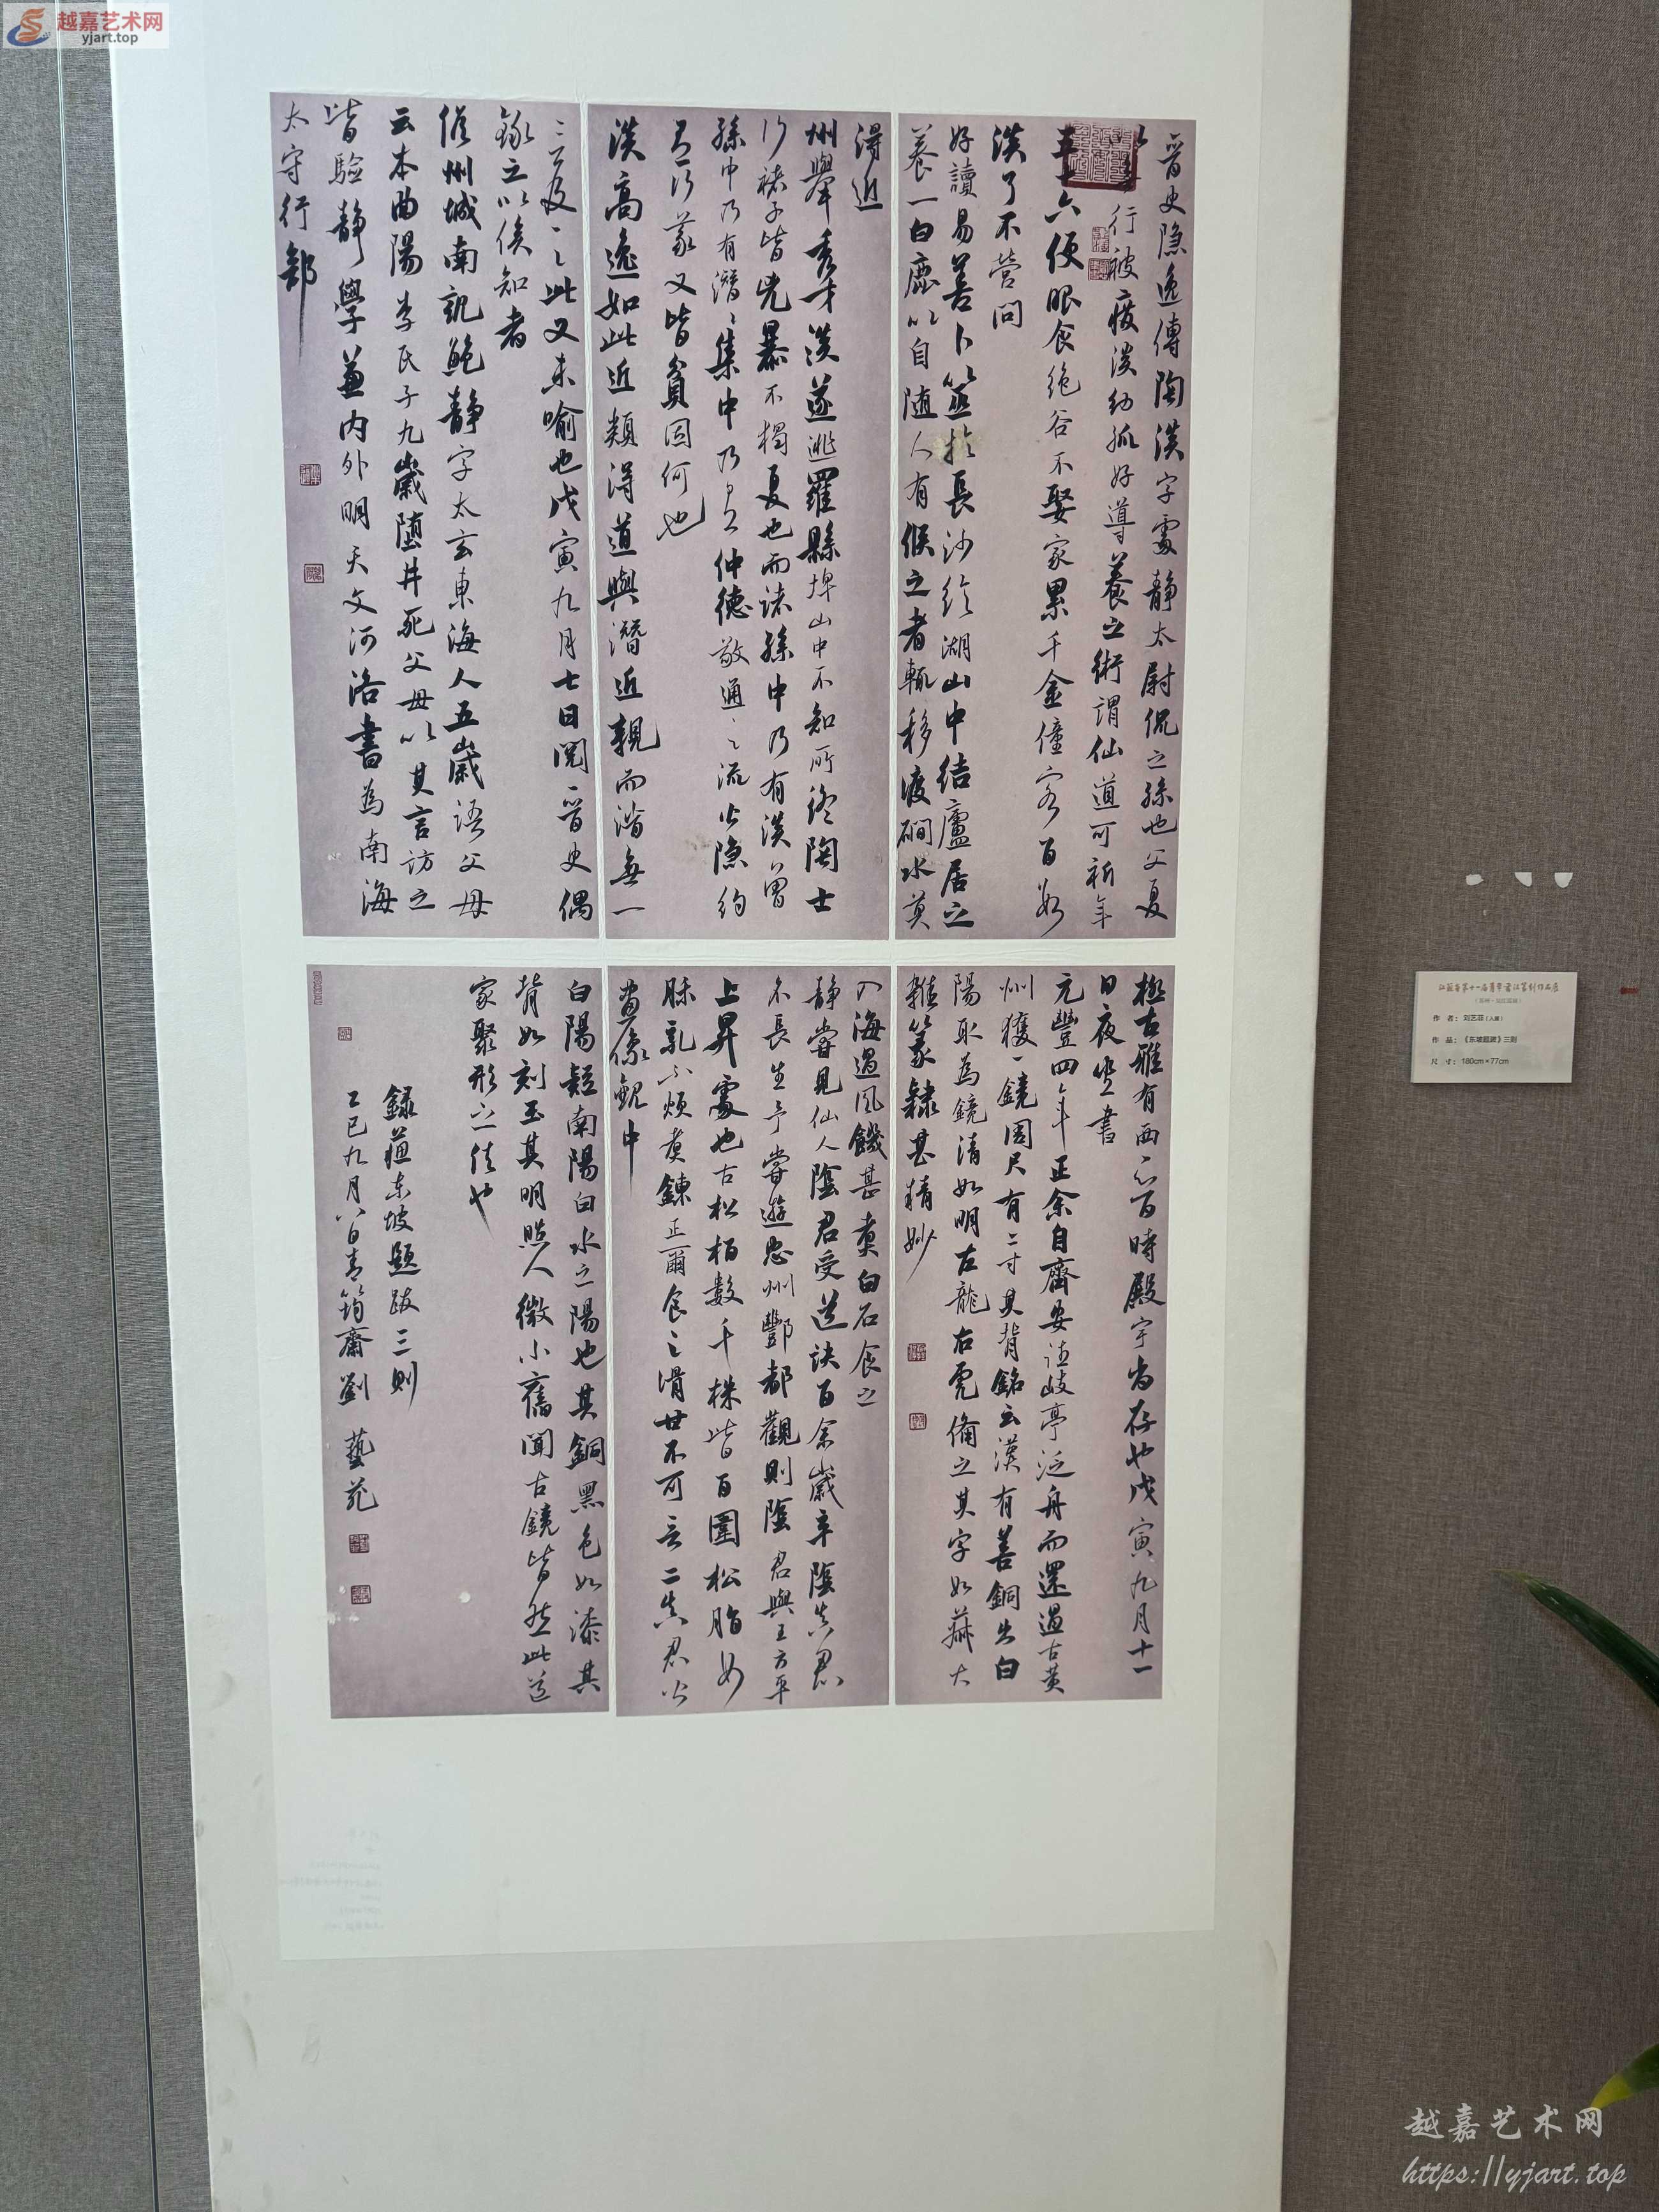 越嘉艺术网
yjart.top
晋史隐逸傳陶淡字處静太尉侃之孫也父夏
行被廢淡幼孤好導養之術謂仙道可祈年
十五六便服食绝谷不娶家累千金僮客百數
淡了不营问
好讀易善卜筮於長沙臨湖山中结廬居之
養一白鹿以自随人有候之者輒移渡磵水莫
得近
州舉秀才淡遂逃羅縣埤山中不知所终陶士
行诸子皆兇暴不獨夏也而诸孫中乃有淡曾
孫中乃有潛潛集中乃有仲德敬通之流皆隐约
有行義又皆貧固何也
淡高逸如此近類得道與潛近親而潛無一
言及之此又未喻也戊寅九月七日閱晋史偶
錄之以俟知者
循州城南觀鮑静字太玄東海人五歲語父母
云本曲陽李氏子九歲堕井死父母以其言访之
皆驗静學兼内外明天文河洛書為南海
太守行部
入海遇风饑甚煮白石食之
静嘗見仙人陰君受道诀百余歲卒陰真君
名長生予嘗遊忠州酆都觀則陰君與王方平
上昇處也古松柏數千株皆百圍松脂如
酥乳不烦煮鍊正爾食之滑甘不可言二真君皆
畫像觀中
極古雅有西晋時殿宇尚存也戊寅九月十一
日夜坐書
元豐四年正余自齊安往岐亭泛舟而還過古黄
州獲一鏡周尺有二寸其背銘云漢有善銅出白
陽取為鏡清如明左龍右虎俻之其字如菽大
雜篆隸甚精妙
白陽疑南陽白水之陽也其銅黑色如漆其
背如刻玉其明照人微小舊聞古鏡皆然此道
家聚形之法也
錄蘇东坡題跋三則
乙巳九月八日青筠齋劉藝苑
江苏省第十一届青年书法篆刻作品展
作 者：刘艺苑（入展）
作 品：《东坡题跋》三则
尺 寸：180cm×77cm
越嘉艺术网
https://yjart.top